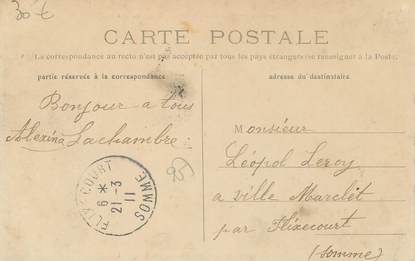 30 €
CARTE POSTALE
La correspondance au recto n'est pas acceptée par tous les pays étrangers se renseigner à la Poste.
partie réservée à la correspondance
adresse du destinataire.
Bonjour a tous
Alexina Lachambre.
FLIXECOURT
6 *
21-3
11
SOMME
95
Monsieur
Léopol Leroy
a ville Marclet
par Flixecourt
(Somme)